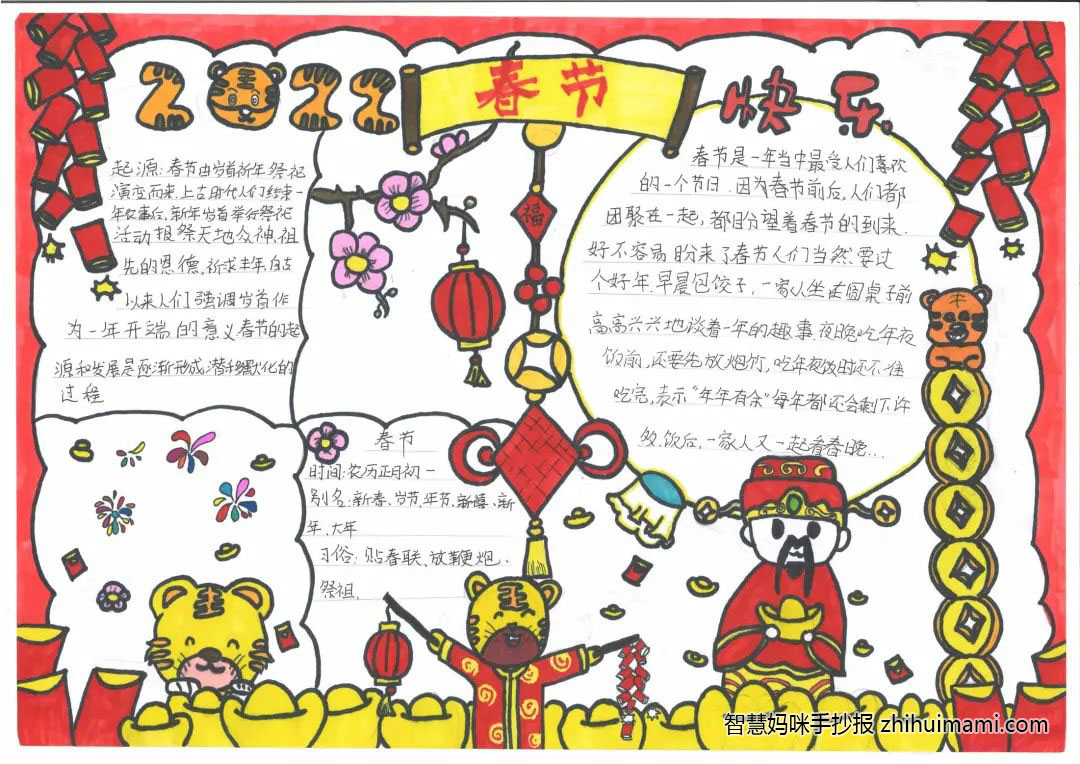 2022
春节
快乐
起源：春节由岁首祈年祭祀
演变而来，上古时代人们结束一
年农事后，新年岁首举行祭祀
活动报祭天地众神、祖
先的恩德，祈求丰年，自古
以来人们强调岁首作
为一年开端的意义春节的起
源和发展是逐渐形成，潜移默化的
过程
福
春节是一年当中最受人们喜欢
的一个节日．因为春节前后，人们都
团聚在一起，都盼望着春节的到来．
好不容易盼来了春节人们当然要过
个好年．早晨包饺子，一家人坐在圆桌子前
高高兴兴地谈着一年的趣事．夜晚吃年夜
饭前，还要先放烟竹，吃年夜饭时还不准
吃完，表示“年年有余”每年都还会剩下许
多．饭后，一家人又一起看春晚...
春节
时间：农历正月初一
别名：新春、岁节、年节、新禧、新
年、大年
习俗：贴春联、放鞭炮、
祭祖．
智慧妈咪手抄报 zhihuimami.com